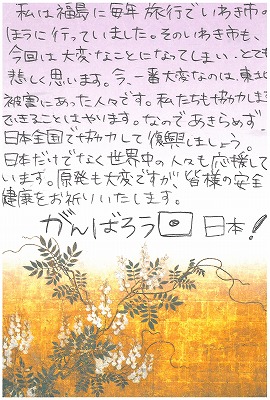 私は福島に毎年旅行でいわき市の
ほうに行っていました。そのいわき市も、
今回は大変なことになってしまい、とても
悲しく思います。今、一番大変なのは、東北
被害にあった人々です。私たちも協力しま
できることはやります。なのであきらめず
日本全国で協力して復興しましょう。
日本だけでなく世界中の人々も応援して
います。原発も大変ですが、皆様の安全
健康をお祈りいたします。
がんばろう 日本!